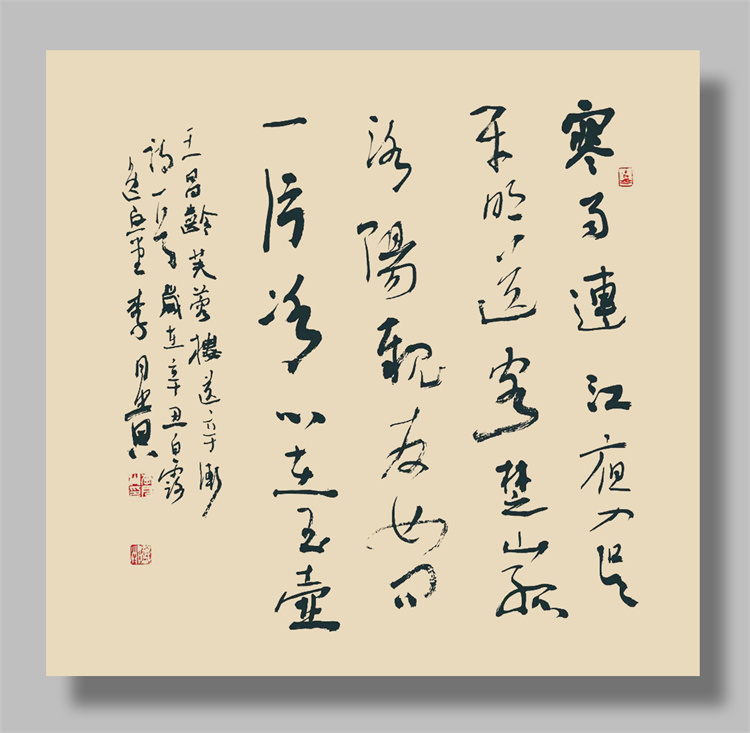 寒雨連江夜入吳
平明送客楚山孤
洛陽親友如問
一片冰心在玉壺
王昌齡芙蓉樓送辛漸
詩一首歲在辛丑白露
堂李月